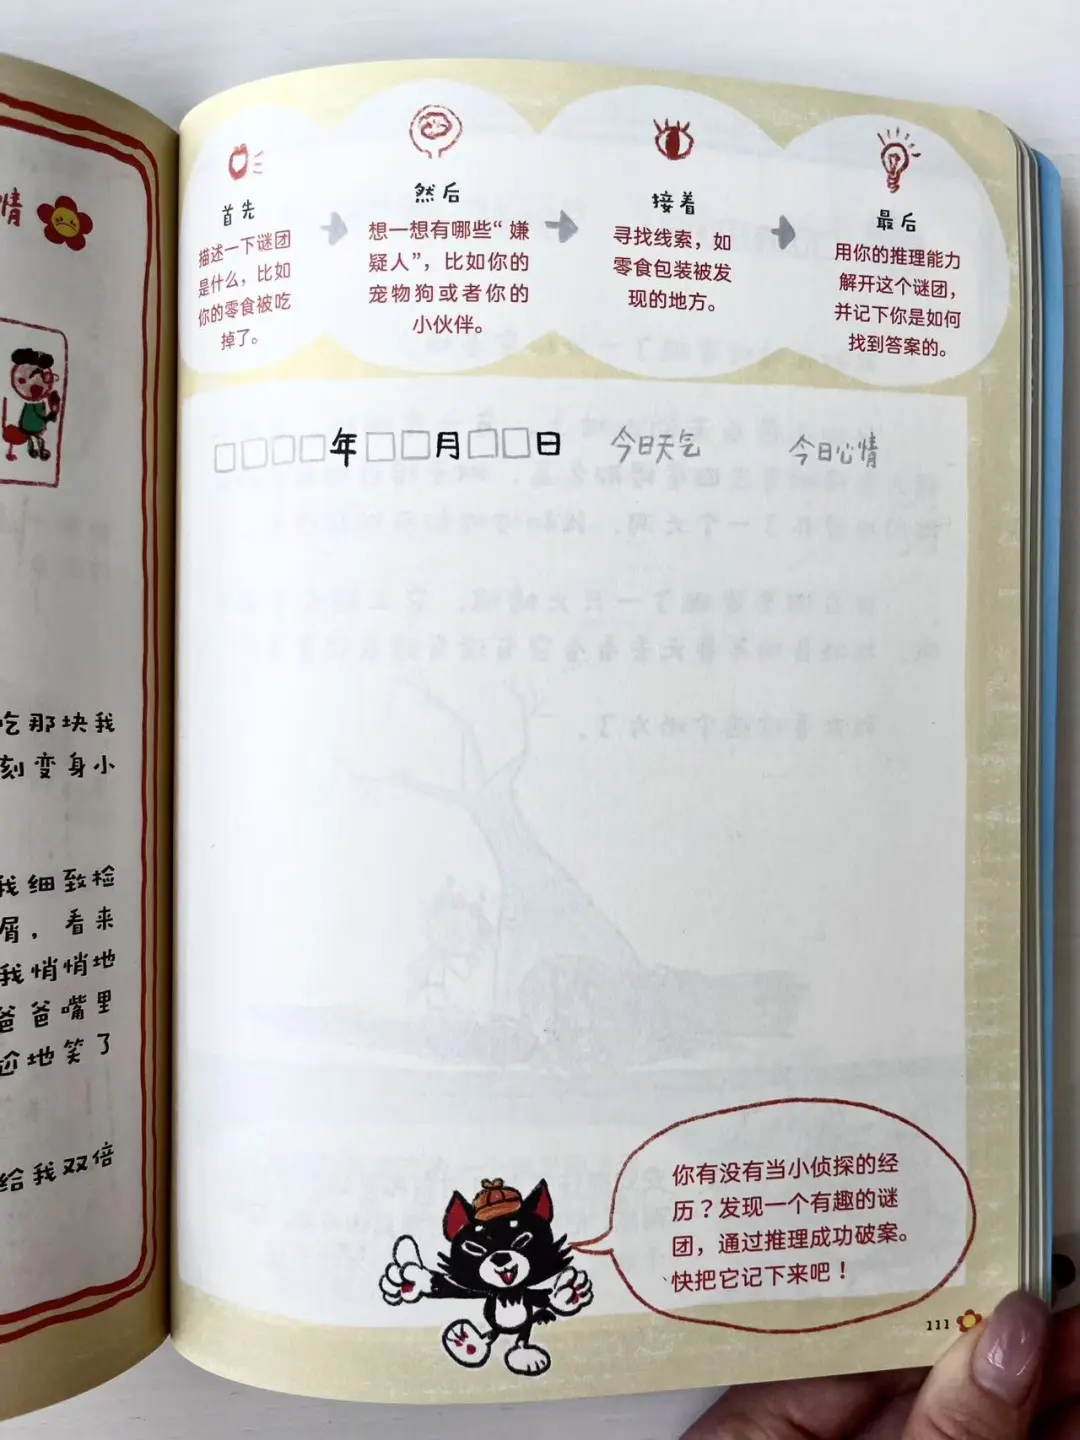 情
吃那块我
刻变身小
我细致检
屑，看来
我悄悄地
爸爸嘴里
尬地笑了
给我双倍
首先
描述一下谜团
是什么，比如
你的零食被吃
掉了。
然后
想一想有哪些“嫌
疑人”，比如你的
宠物狗或者你的
小伙伴。
接着
寻找线索，如
零食包装被发
现的地方。
最后
用你的推理能力
解开这个谜团，
并记下你是如何
找到答案的。
□□□□年□□月□□日 今日天气 今日心情
你有没有当小侦探的经
历？发现一个有趣的谜
团，通过推理成功破案。
快把它记下来吧！
111